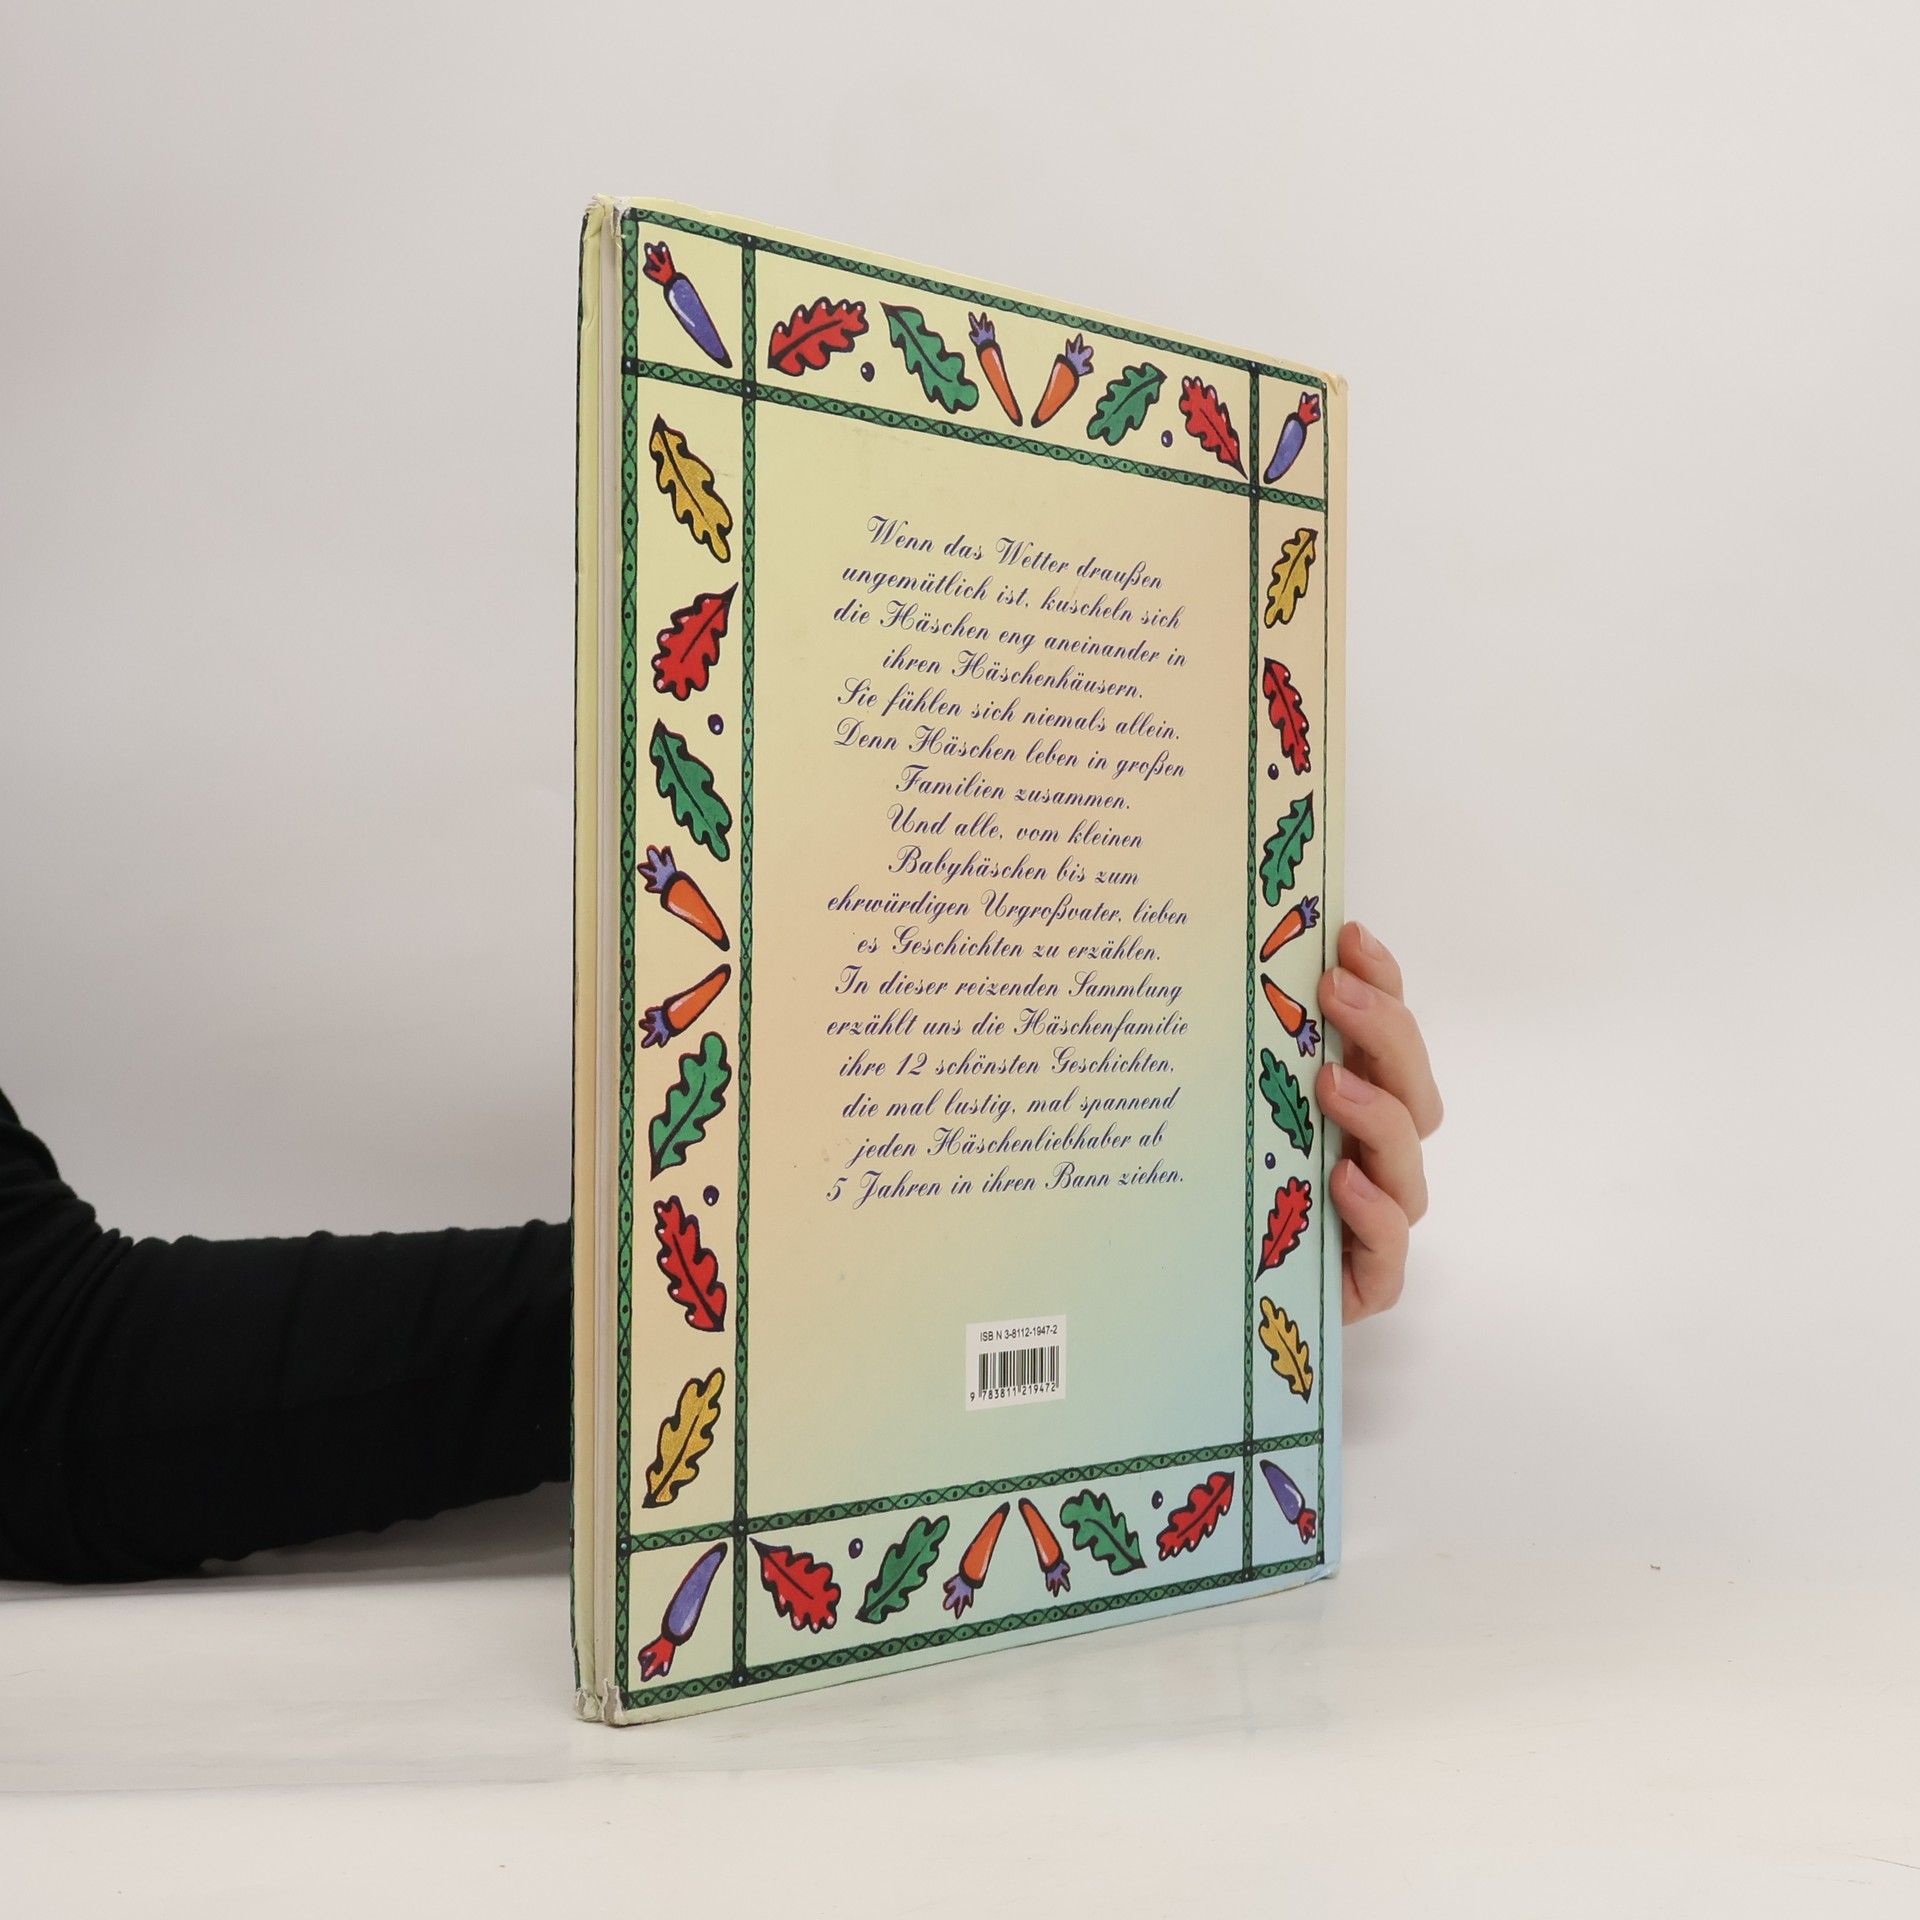 Wenn das Wetter draußen
ungemütlich ist, kuscheln sich
die Häschen eng aneinander in
ihren Häschenhäusern.
Sie fühlen sich niemals allein.
Denn Häschen leben in großen
Familien zusammen.
Und alle, vom kleinen
Babyhäschen bis zum
ehrwürdigen Urgroßvater, lieben
es Geschichten zu erzählen.
In dieser reizenden Sammlung
erzählt uns die Häschenfamilie
ihre 12 schönsten Geschichten,
die mal lustig, mal spannend
jeden Häschenliebhaber ab
5 Jahren in ihren Bann ziehen.
ISB N 3-8112-1947-2
9 783811 219472